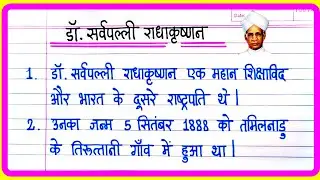 डॉ. सर्वपल्ली राधाकृष्णन
1. डॉ. सर्वपल्ली राधाकृष्णन एक महान शिक्षाविद
और भारत के दूसरे राष्ट्रपति थे |
2. उनका जन्म 5 सितंबर 1888 को तमिलनाडु
के तिरूत्तानी गाँव में हुआ था |